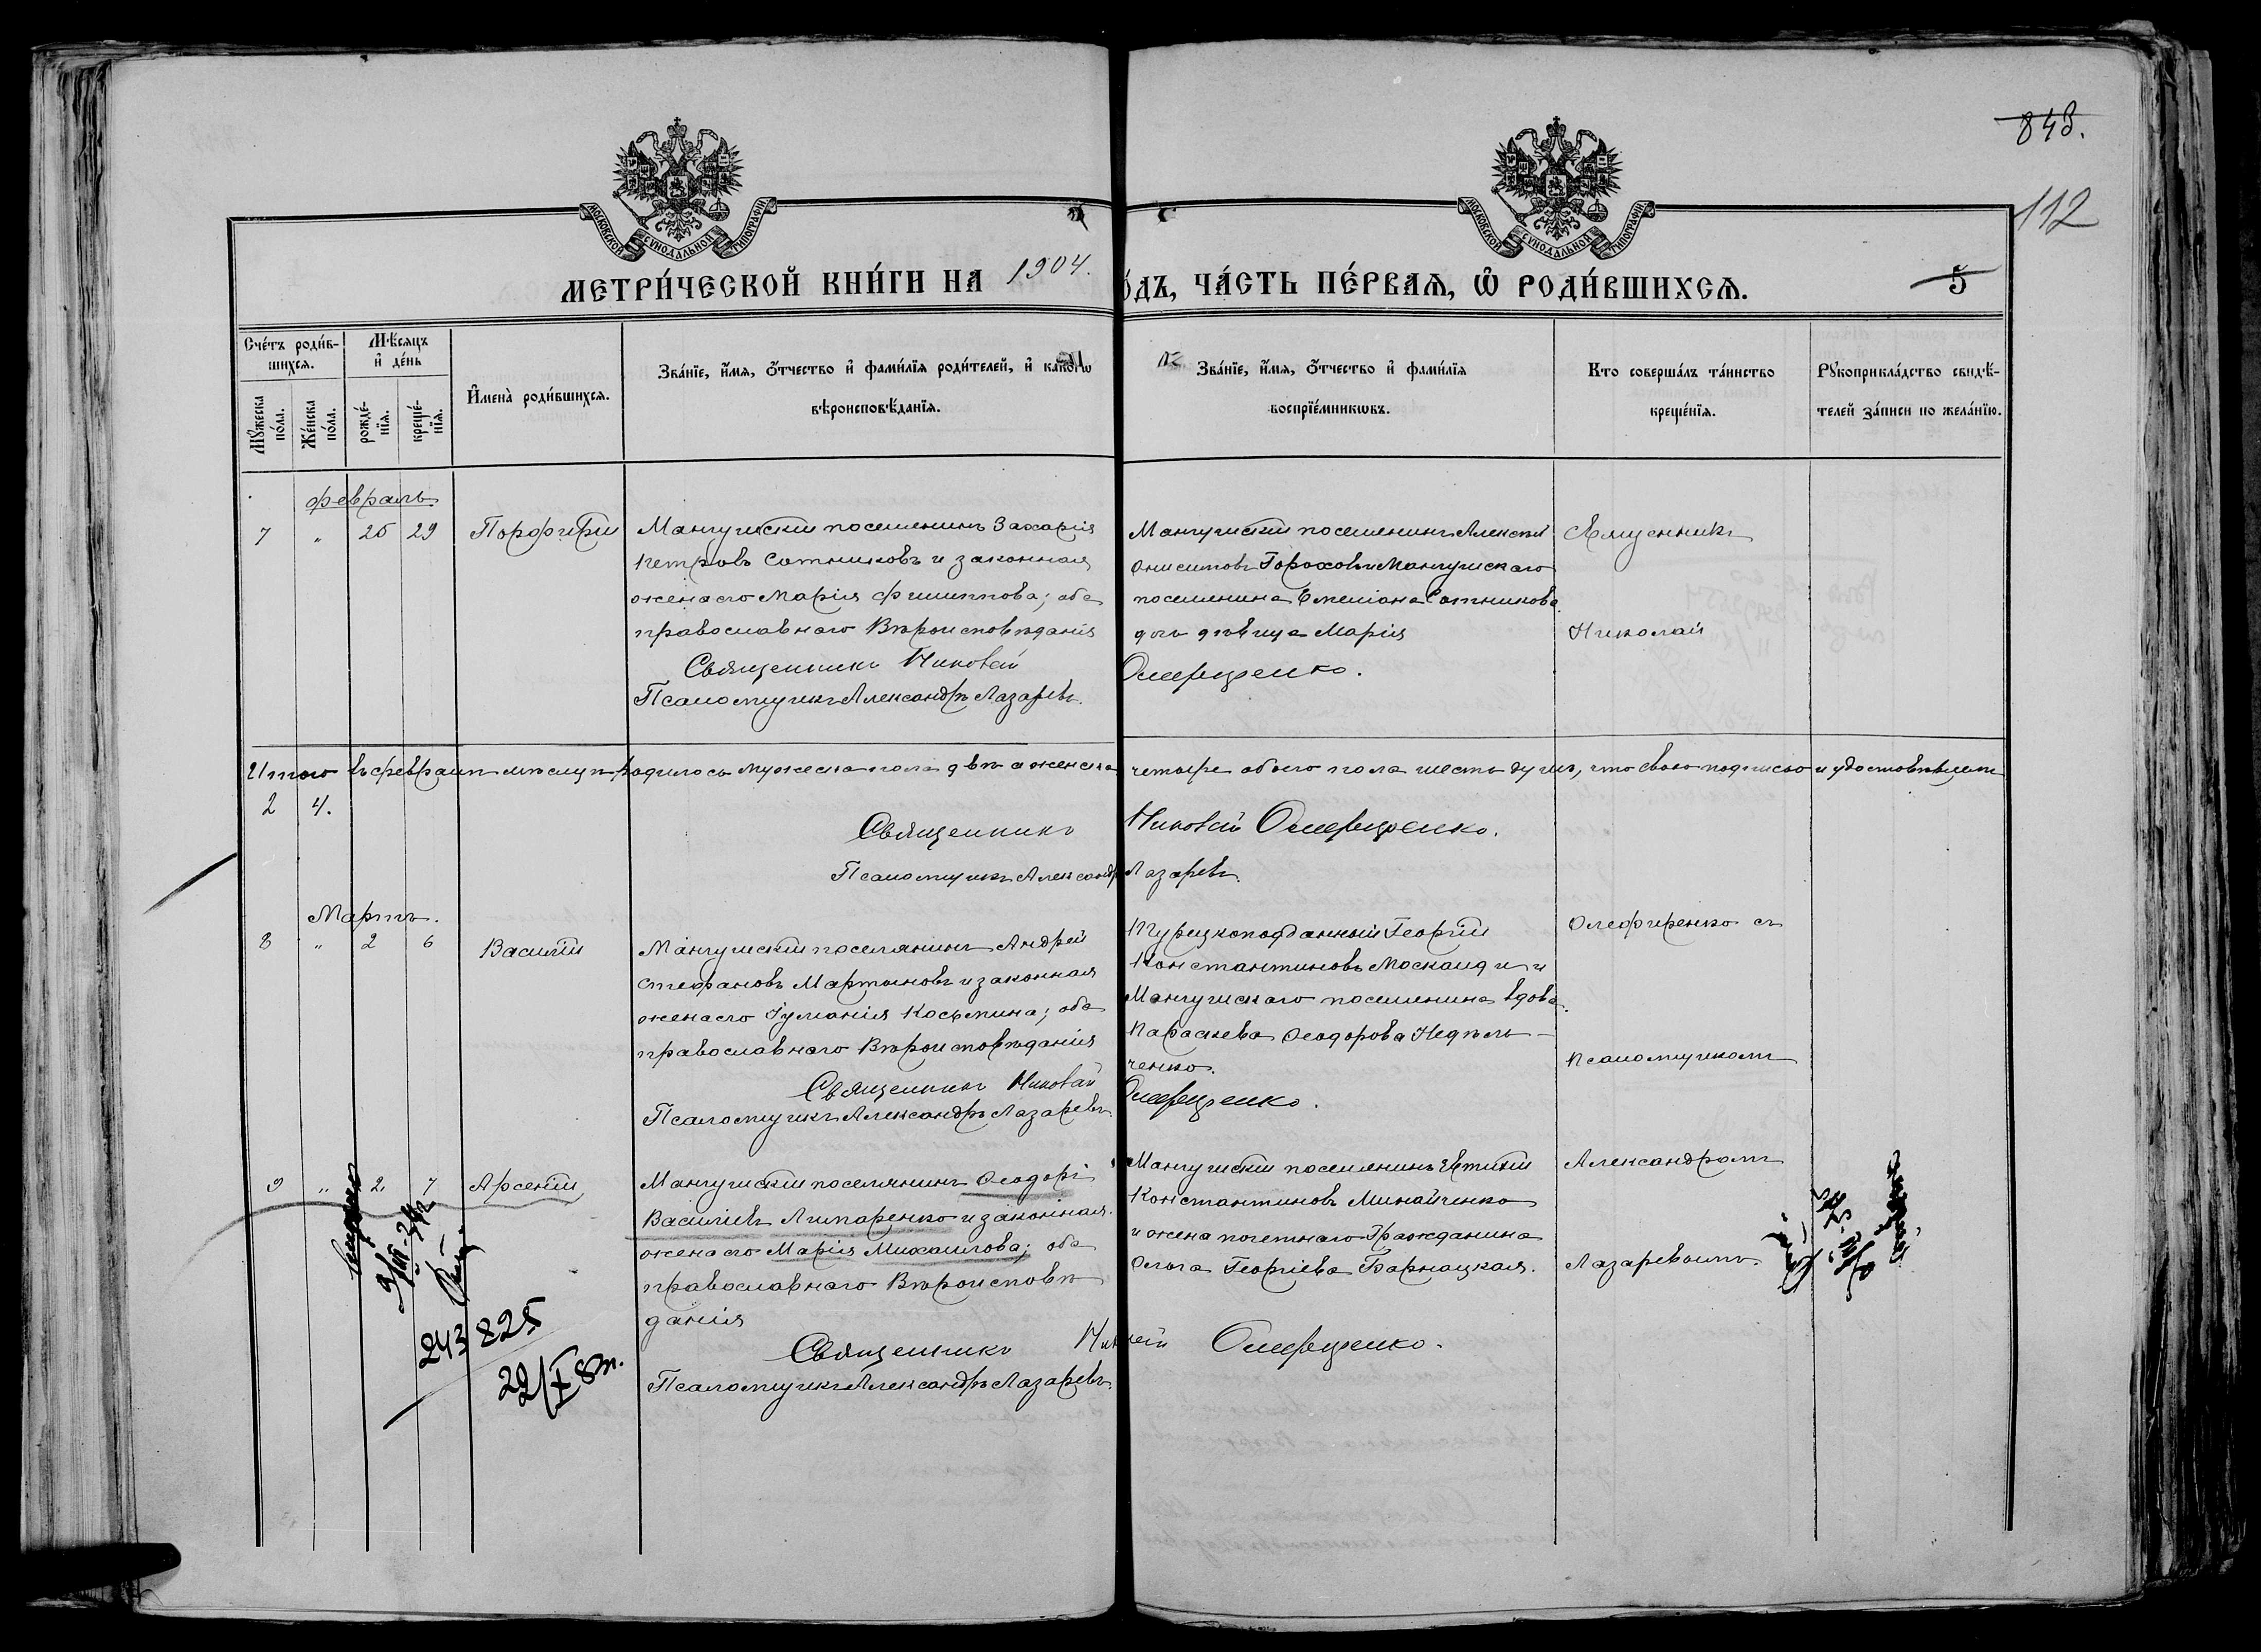 848.
112
МОСКОВСКОЙ СУНОДАЛЬНОЙ ТИПОГРАФІИ
МОСКОВСКОЙ СУНОДАЛЬНОЙ ТИПОГРАФІИ
МЕТРИ́ЧЕСКОЙ КНИ́ГИ НА 1904.
О́ДЪ, ЧА́СТЬ ПЕ́РВАѦ, Ѡ РОДИ́ВШИХСѦ.
5
Сче́тъ роди́в-
шихсѧ.
Мꙋжеска по́ла.
Же́нска по́ла.
Мѣ́сѧцъ
и҆ де́нь
рожде́-
нїѧ.
креще́-
нїѧ.
И҆мена̀ роди́вшихсѧ.
Зва́нїе, и҆́мѧ, ѻ҆́тчество и҆ фами́лїѧ роди́телей, и҆ како́гѡ
вѣроисповѣ́данїѧ.
Зва́нїе, и҆́мѧ, ѻ҆́тчество и҆ фами́лїѧ
воспрїе́мникѡвъ.
Кто соверша́лъ та́инство
креще́нїѧ.
Рꙋкоприкла́дство свидѣ́-
телей за́писи по жела́нїю.
февраль
7 „ 25 29 Порфирій
Мангушскій поселенинъ Захарія
Петровъ Сотниковъ и законная
жена его Марія Филиппова; оба
православнаго Вѣроисповѣданія
Священникъ Николай
Псаломщикъ Александръ Лазаревъ.
Мангушскій поселенинъ Алексѣй
Онисимовъ Гороховъ и Мангушскаго
поселенина Емеліана Сотникова
дочь дѣвица Марія
Олефиренко.
Священникъ
Николай
Итого въ февралѣ мѣсяцѣ родилось мужеска пола двѣ а женска
четыре обоего пола шесть душъ, что свою подписью и удостовѣряемъ
2 4.
Священникъ
Николай Олефиренко.
Псаломщикъ Александръ
Лазаревъ.
Мартъ.
8 „ 2 6 Василій
Мангушскій поселянинъ Андрей
Стефановъ Мартыновъ и законная
жена его Іуліанія Косьмина; оба
православнаго Вѣроисповѣданія
Священникъ Николай
Псаломщикъ Александръ Лазаревъ.
Турецкоподданный Георгій
Константиновъ и
Мангушскаго поселенина вдова
Параскева Ѳеодорова Недѣль-
ченко.
Олефиренко.
Олефиренко съ
Псаломщикомъ
9 „ 2 7 Арсеній
Мангушскій поселянинъ Ѳеодоръ
Василіевъ Липаренко и законная
жена его Марія Михаилова; оба
православнаго Вѣроисповѣ
данія
Священникъ Николай
Псаломщикъ Александръ Лазаревъ.
Мангушскій поселянинъ Евтихій
Константиновъ Минайченко
и жена почетнаго Гражданина
Ольга Георгіева Барнацкая.
Олефиренко.
Александромъ
Лазаревымъ.
243825
22/X 8